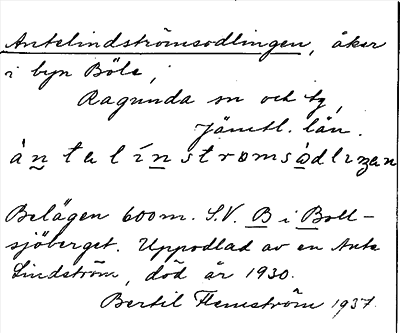 Antelindströmsodlingen, åker
i byn Böle,
Ragunda sn och tg,
Jämtl. län.
àn̰talín̰stromsòdlizan
Belägen 600 m. S.V. B i Boll-
sjöberget. Uppodlad av en Ante
Lindström, död år 1930.
Bertil Flemström 1937.